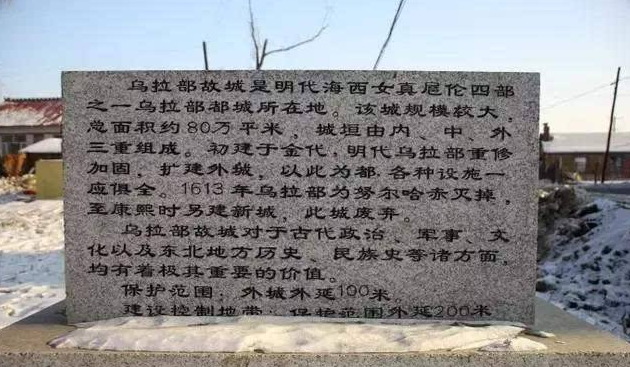 乌拉部故城是明代海西女真扈伦四部
之一乌拉部都城所在地。该城规模较大，
总面积约80万平米，城垣由内、中、外
三重组成。初建于金代，明代乌拉部重修
加固，扩建外城，以此为都，各种设施一
应俱全。1613年乌拉部为努尔哈赤灭掉，
至康熙时另建新城，此城废弃。
乌拉部故城对于古代政治、军事、文
化以及东北地方历史、民族史等诸方面，
均有着极其重要的价值。
保护范围：外城外延100米。
建设控制地带：保护范围外延200米